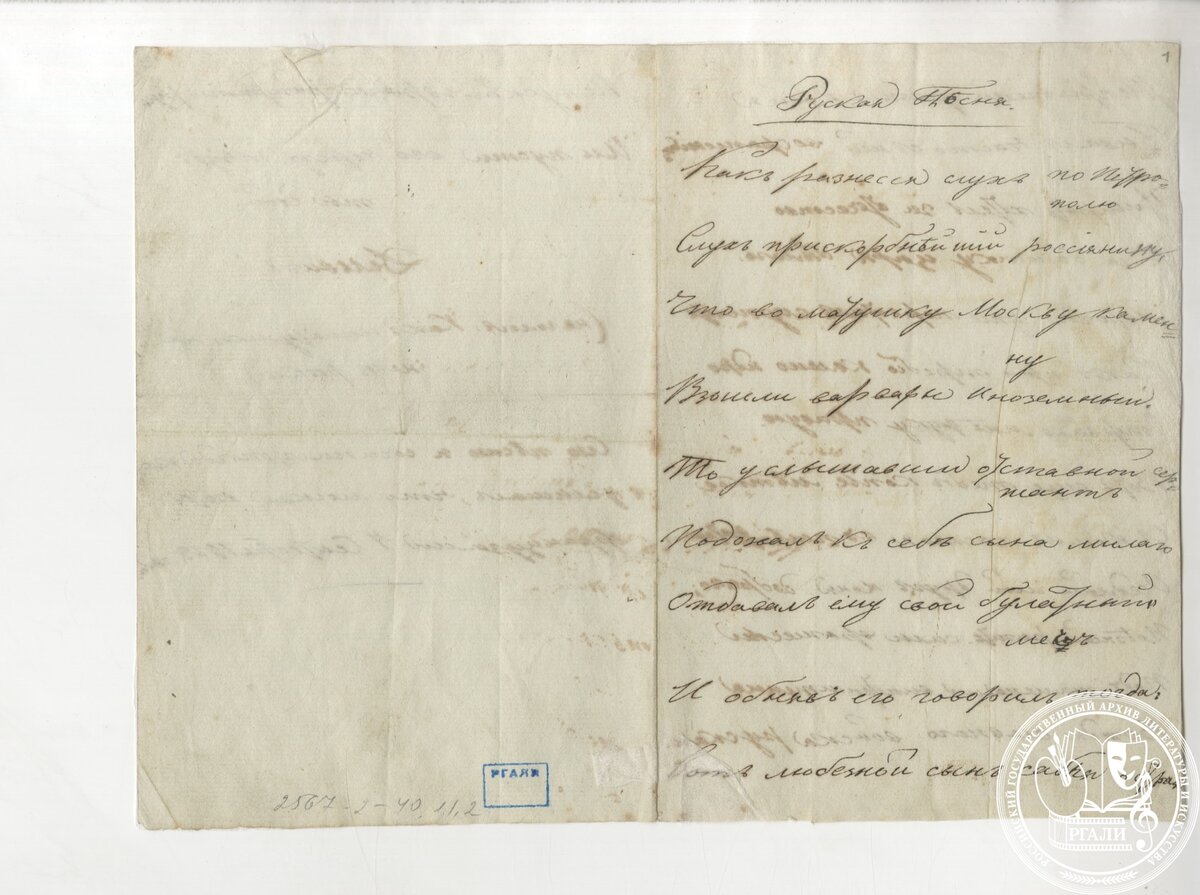 1
Руская Пѣсня.
Какъ разнесся слухъ по Петро=
полю
Слухъ прискорбнѣйшій россіянину,
Что во матушку Москву камен=
ну
Взошли варвары иноземныи.
То услышавши отставной сер=
жантъ
Подозвалъ къ себѣ сына милаго
Отдавалъ ему свой булатный
мечь
И обнявъ его говорилъ тогда:
Вотъ любезной сынъ сабля
РГАЛИ
2567-2-40, л.2
РОССИЙСКИЙ ГОСУДАРСТВЕННЫЙ АРХИВ ЛИТЕРАТУРЫ И ИСКУССТВА
РГАЛИ